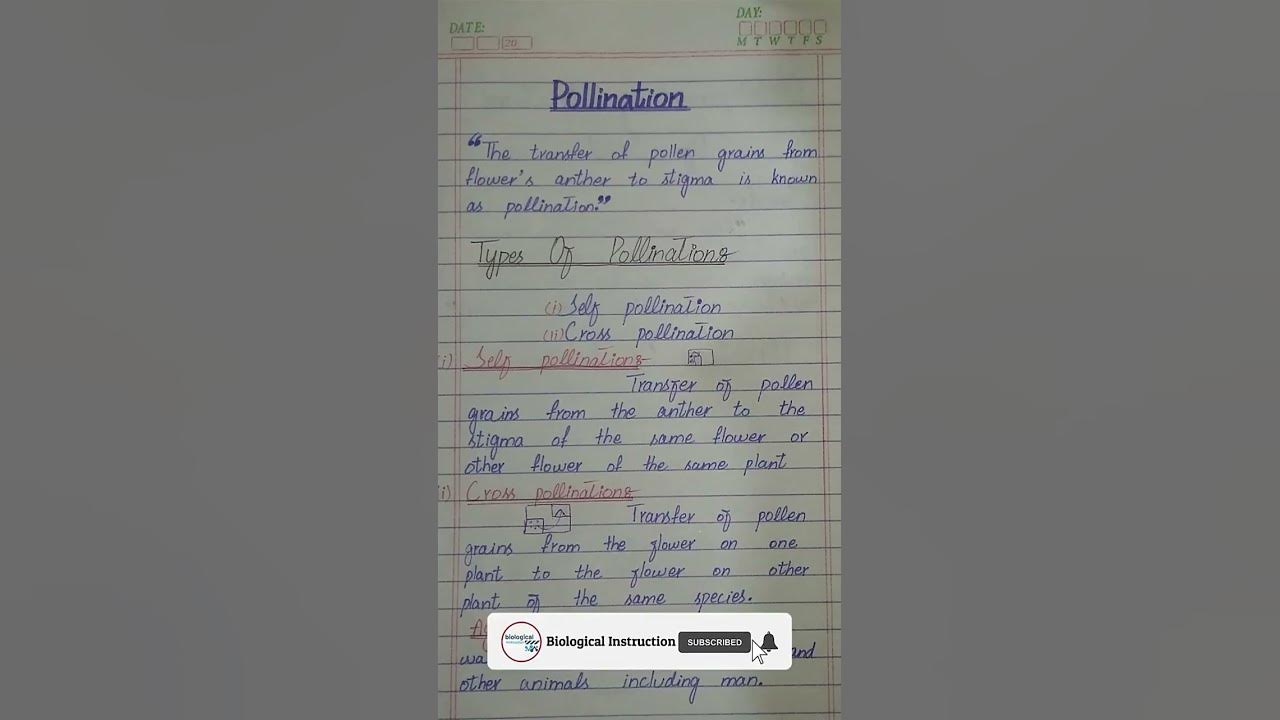 DATE:
20
DAY:
M T W T F S
Pollination
“The transfer of pollen grains from
flower's anther to stigma is known
as pollination.”
Types Of Pollinations
(i) Self pollination
(ii) Cross pollination
i) Self pollinations
Transfer of pollen
grains from the anther to the
stigma of the same flower or
other flower of the same plant
i) Cross pollinations
Transfer of pollen
grains from the flower on one
plant to the flower on other
plant of the same species.
biological
Biological Instruction
SUBSCRIBED
and
other animals including man.